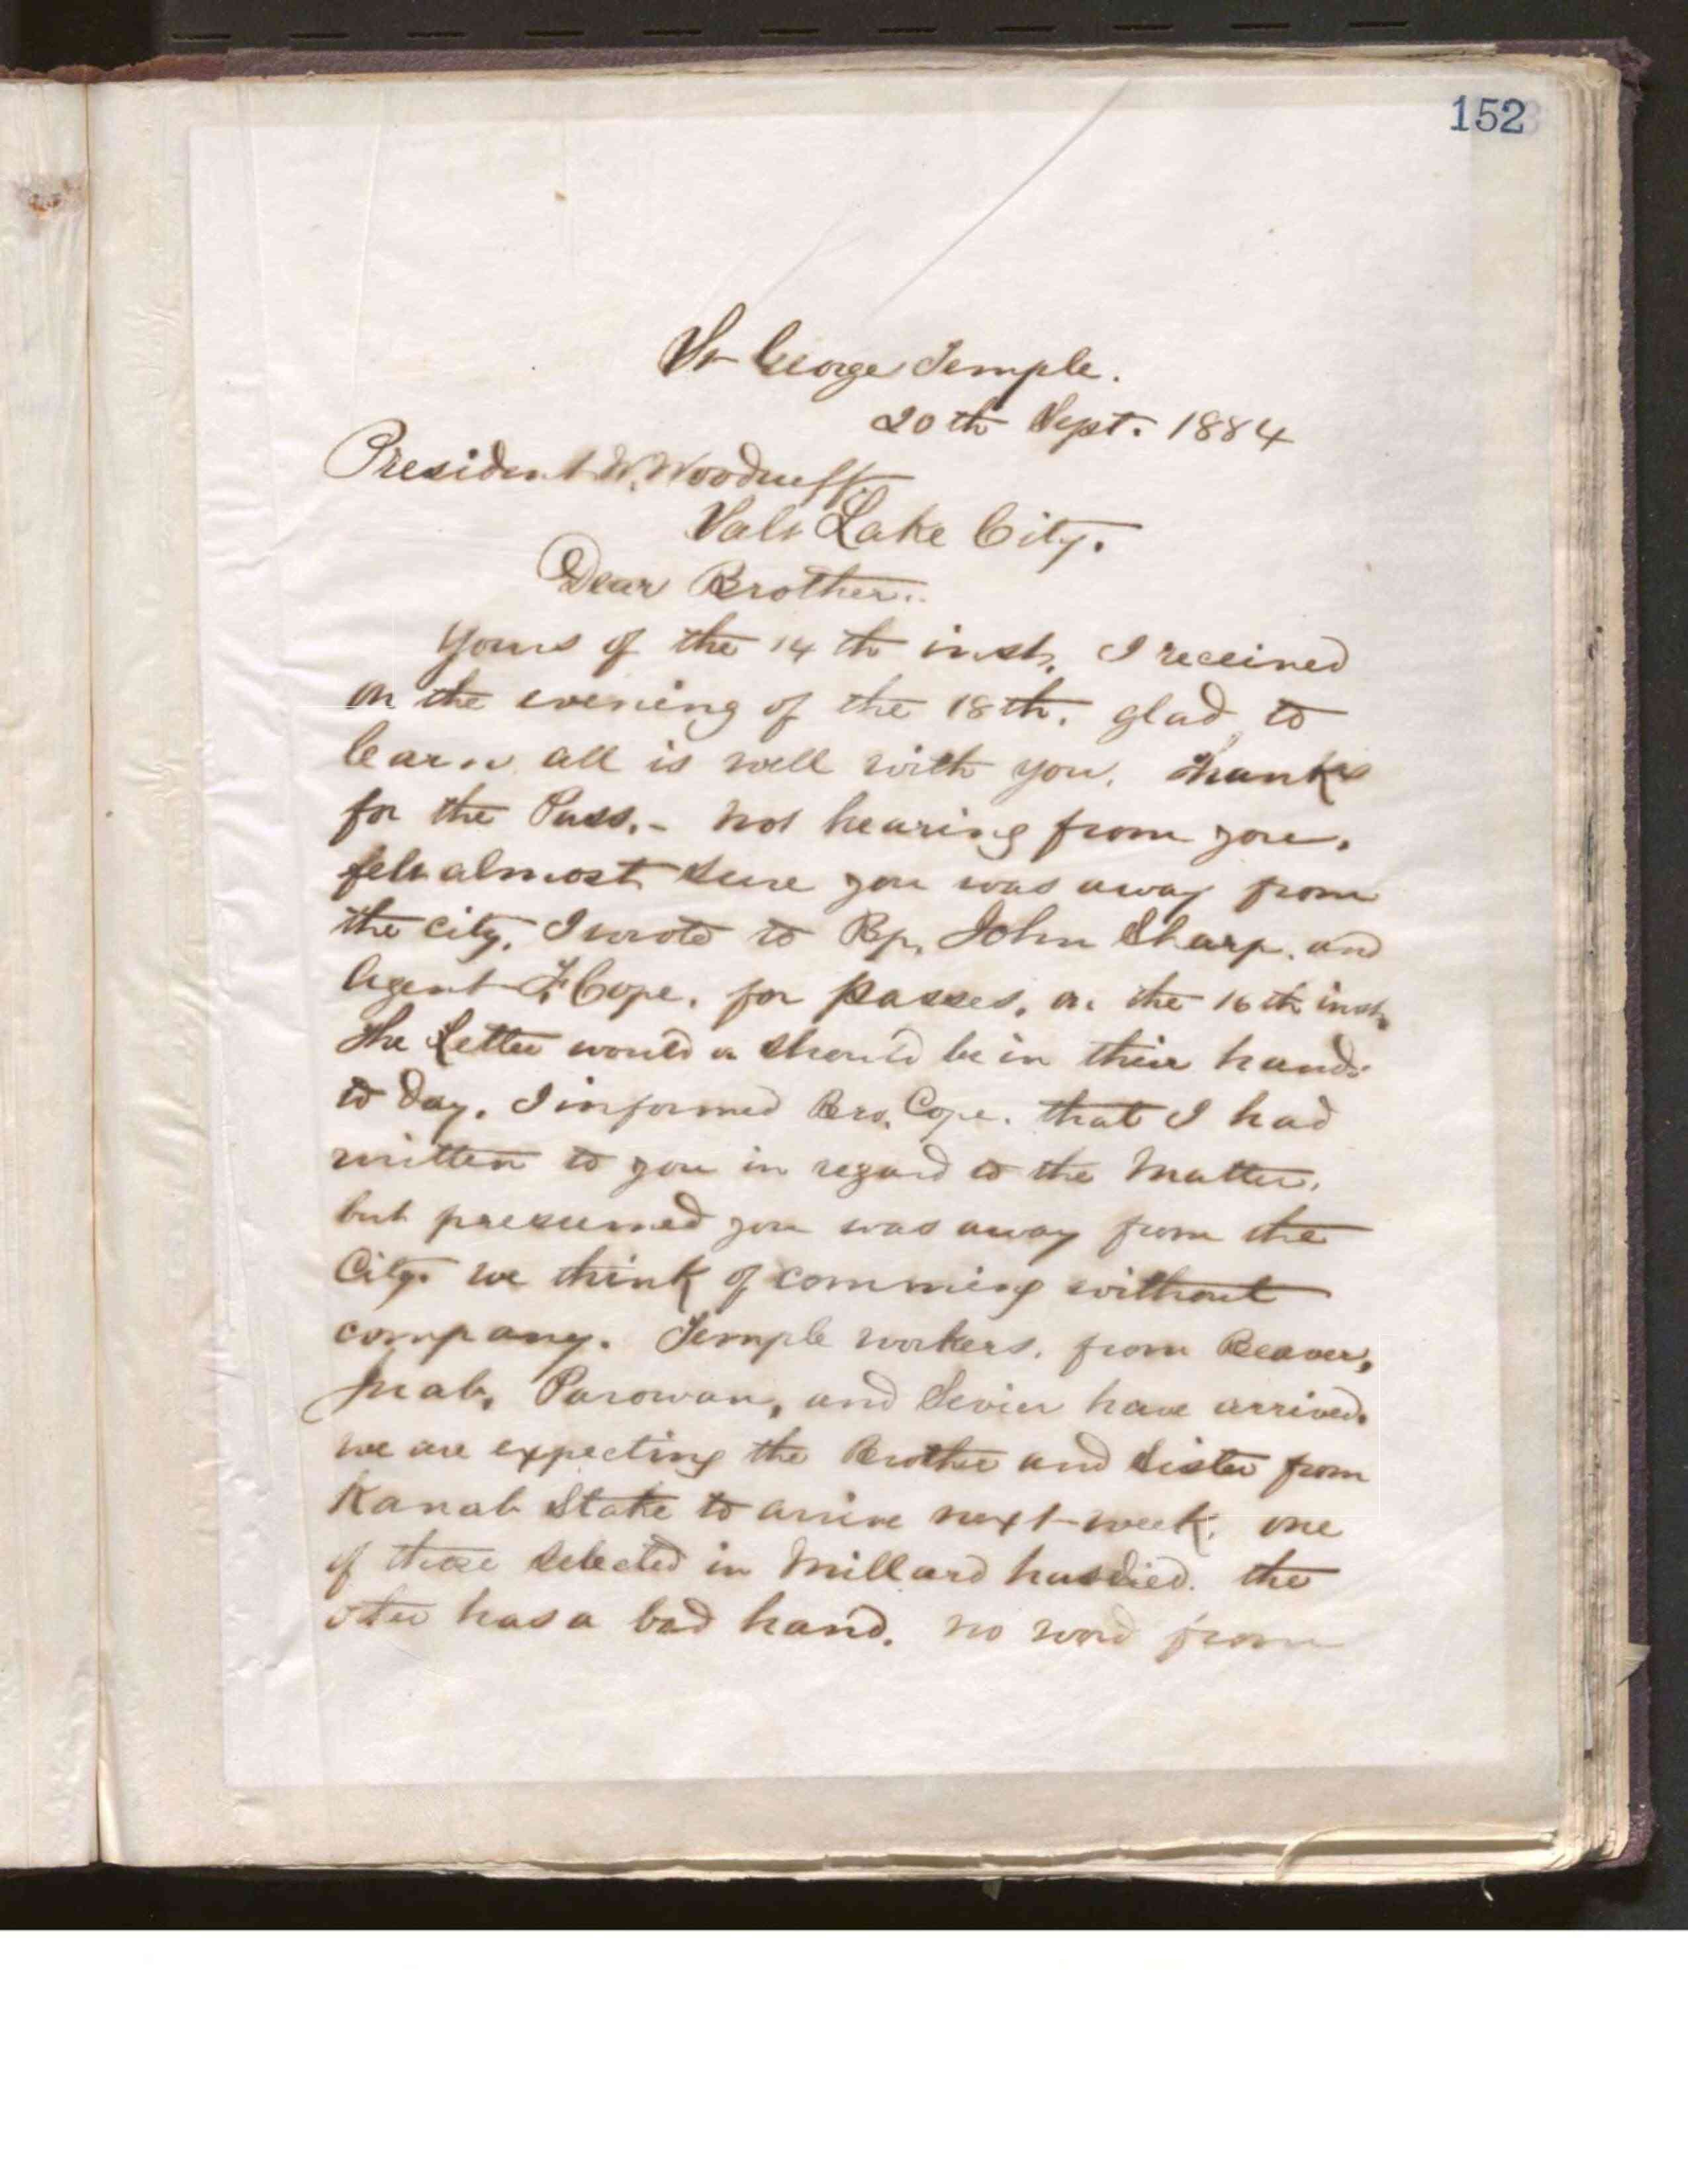 152
St George Temple.
20th Sept. 1884
President W. Woodruff.
Salt Lake City.
Dear Brother..
Yours of the 14th inst. I received
on the evening of the 18th. glad to
learn all is well with you. thanks
for the Pass. - not hearing from you.
felt almost sure you was away from
the city. I wrote to Bp. John Sharp. and
Agent F. Cope. for passes. on the 16th inst.
The Letter would or should be in their hands
to day. I informed Bro. Cope. that I had
written to you in regard to the Matter.
but presumed you was away from the
City. we think of comming without
company. Temple workers. from Beaver,
Juab, Parowan, and Sevier have arrived.
we are expecting the Brother and Sister from
Kanab Stake to arrive next week. one
of those selected in Millard has died. the
other has a bad hand. no word from